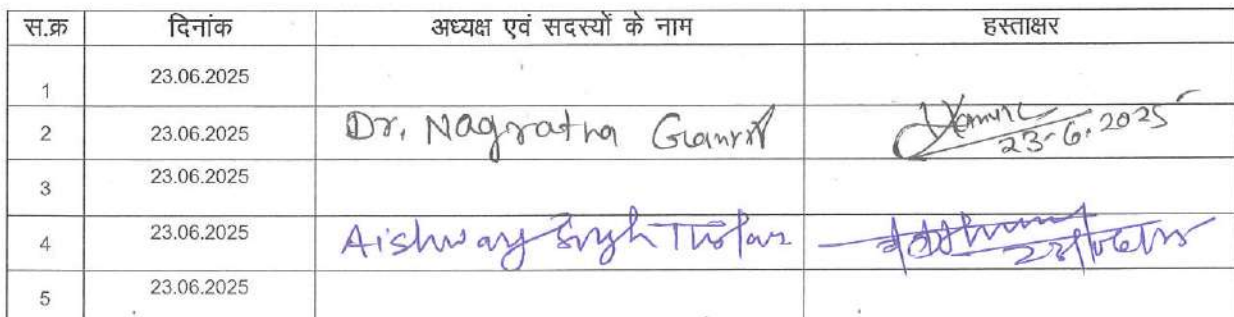 स.क्र दिनांक अध्यक्ष एवं सदस्यों के नाम हस्ताक्षर
1 23.06.2025
2 23.06.2025 Dr. Nagratna 23-6.2025
3 23.06.2025
4 23.06.2025 Aishway Singh
5 23.06.2025